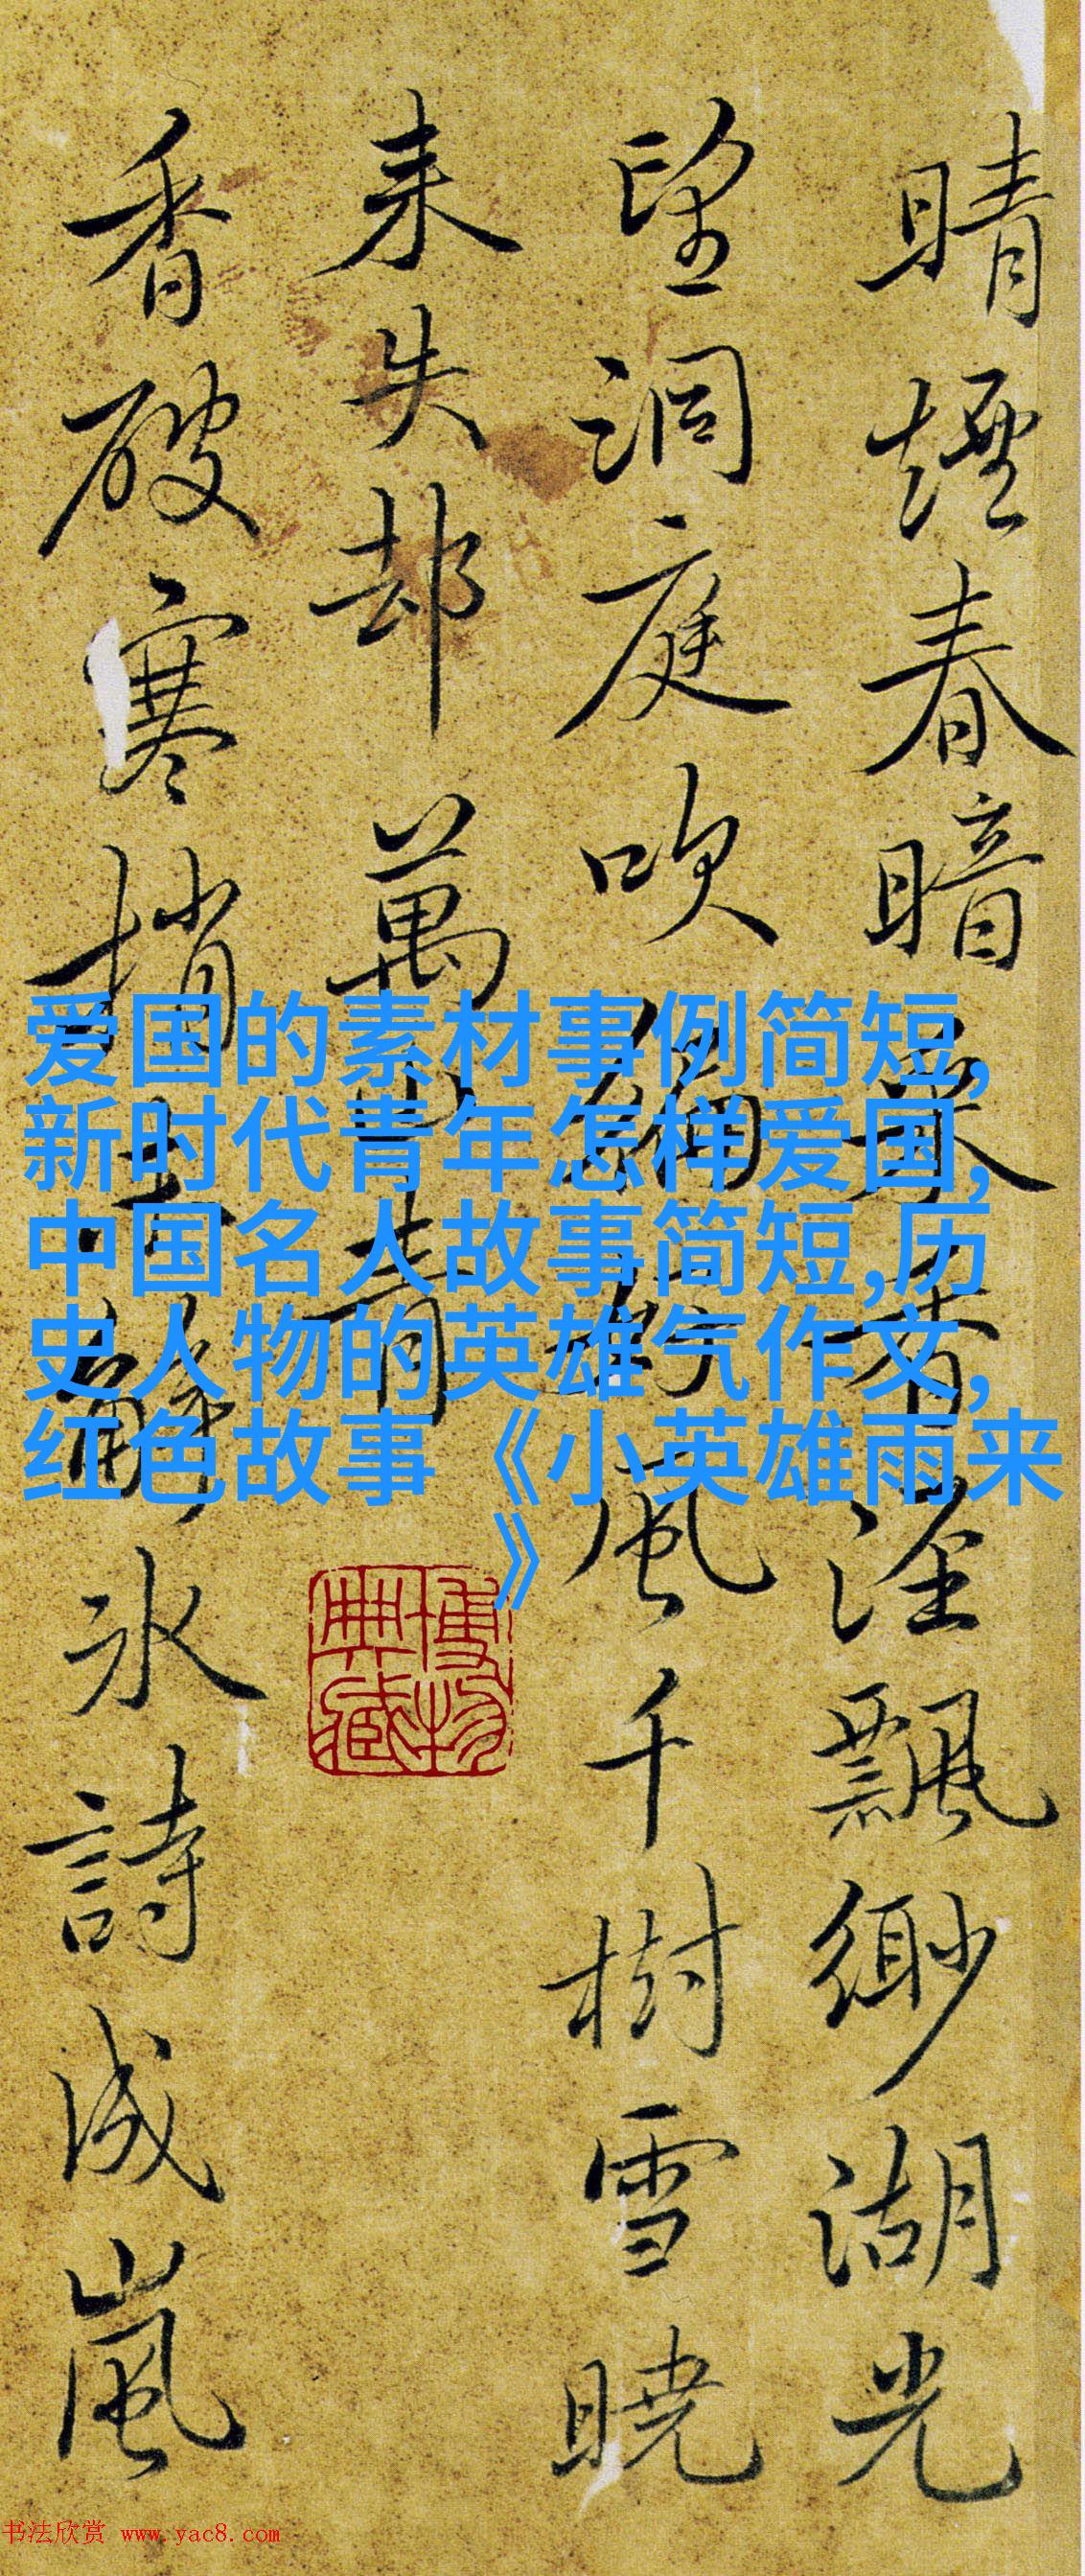 晴煙春暗飄緲湖光
望洞庭吹風千樹雪曉
来失却萬山青
香破寒梢解氷詩成嵐
爱国的素材事例简短,
新时代青年怎样爱国,
中国名人故事简短,历
史人物的英雄气作文,
红色故事《小英雄雨来
》
博物
典藏
书法欣赏 www.yac8.com